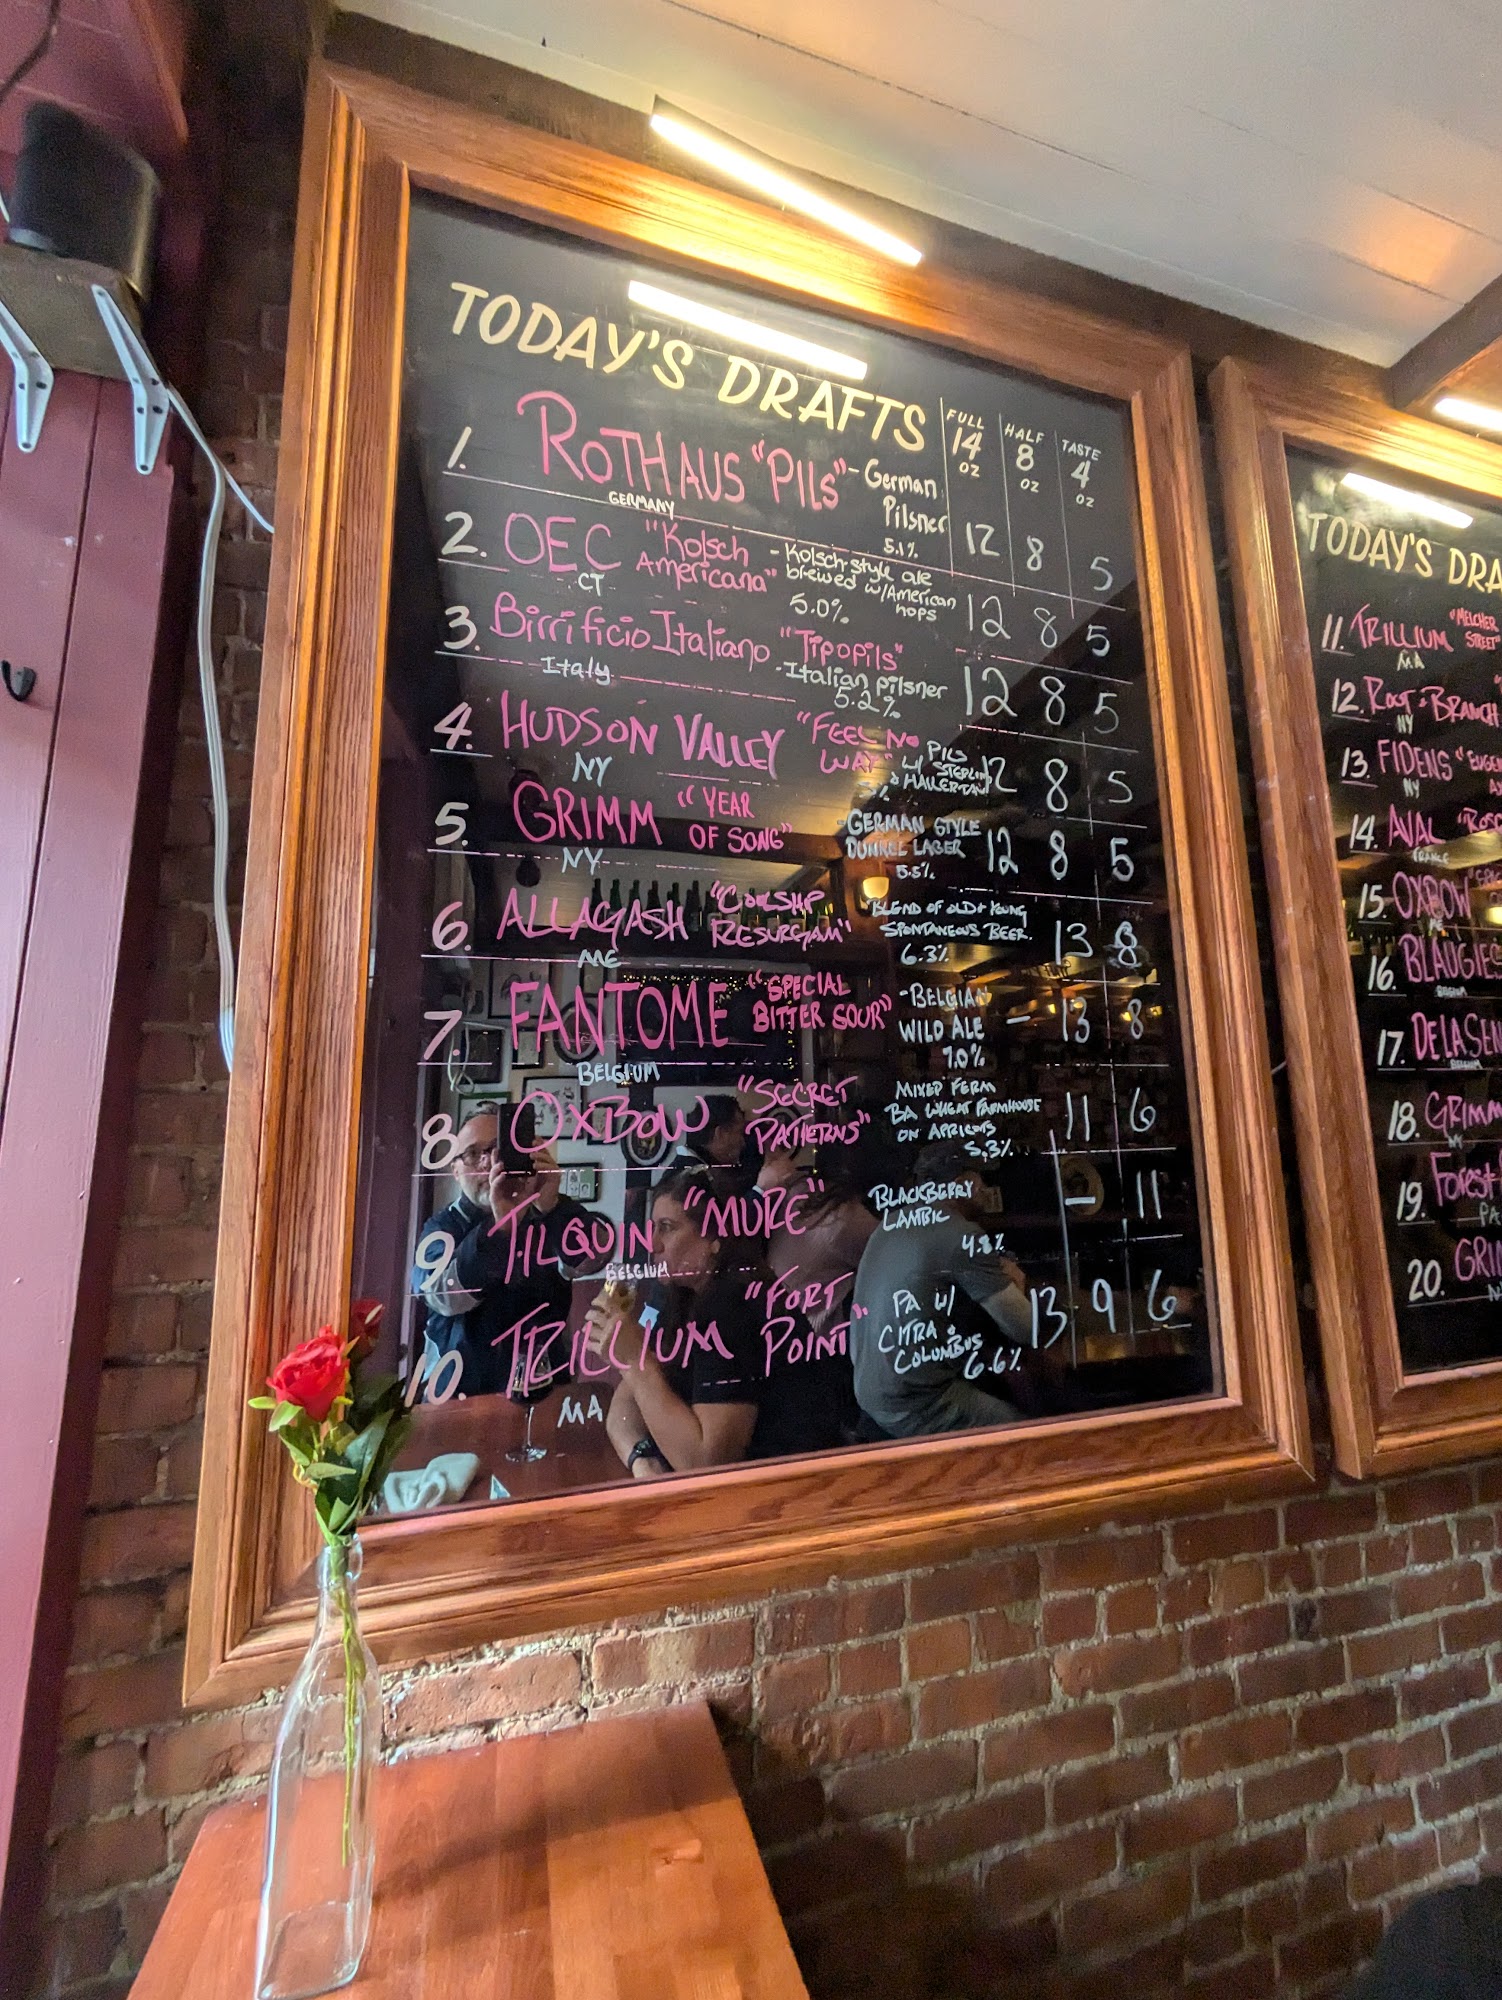 TODAY'S DRAFTS
FULL HALF TASTE
14 8 4
OZ OZ OZ
1. ROTHAUS "PILS" - German
Pilsner
GERMANY 5.1% 12 8 5
2. OEC "Kolsch
Americana" - Kolsch-style ale
brewed w/American
hops
CT 5.0% 12 8 5
3. Birrificio Italiano "Tipopils"
Italy - Italian pilsner
5.2% 12 8 5
4. HUDSON VALLEY "FEEL NO
WAY" PILS
W/ STERLING
& HALLERTAU
NY 5% 12 8 5
5. GRIMM "YEAR
OF SONG" - GERMAN STYLE
DUNKEL LAGER
NY 5.5% 12 8 5
6. ALLAGASH "COOLSHIP
RESURGAM" BLEND OF OLD + YOUNG
SPONTANEOUS BEER.
ME 6.3% 13 8
7. FANTOME "SPECIAL
BITTER SOUR" - BELGIAN
WILD ALE
BELGIUM 7.0% - 13 8
8. OXBOW "SECRET
PATTERNS" MIXED FERM
BA WHEAT FARMHOUSE
ON APRICOTS
5.3% 11 6
9. TILQUIN "MURE" BLACKBERRY
LAMBIC
BELGIUM 4.8% - 11
10. TRILLIUM "FORT
POINT" PA W/
CITRA &
COLUMBUS
MA 6.6% 13 9 6
TODAY'S DRA
11. TRILLIUM "MELCHER
STREET"
MA
12. ROOT + BRANCH
NY
13. FIDENS
NY
14. AVAL
FRANCE
15. OXBOW
ME
16. BLAUGIES
BELGIUM
17. DE LA SEN
BELGIUM
18. GRIMM
NY
19. FOREST
PA
20. GRIM